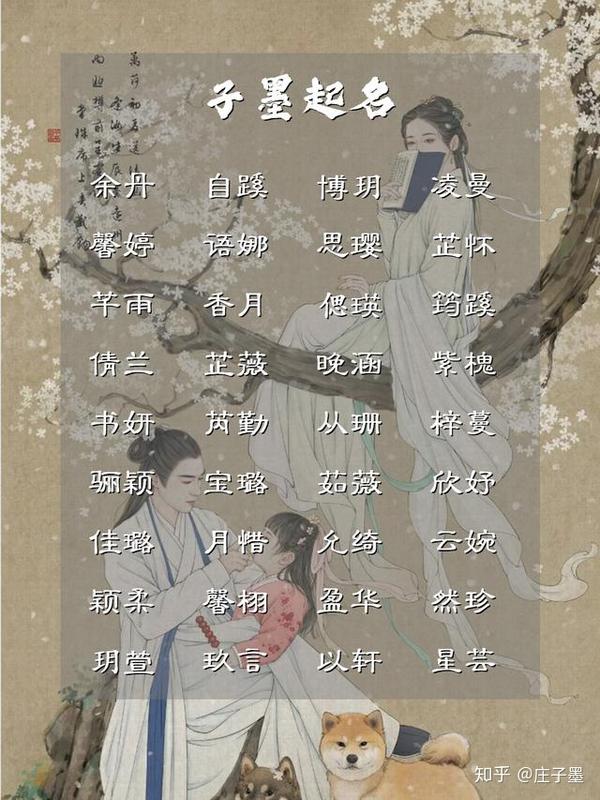 子墨起名
余丹 自蹊 博玥 凌曼
馨婷 语娜 思璎 芷怀
芊雨 香月 偲瑛 筠蹊
倩兰 芷薇 晚涵 紫槐
书妍 芮勤 从珊 梓蔓
骊颖 宝璐 茹薇 欣妤
佳璐 月惜 允绮 云婉
颖柔 馨栩 盈华 然珍
玥萱 玖言 以轩 星芸
知乎 @庄子墨